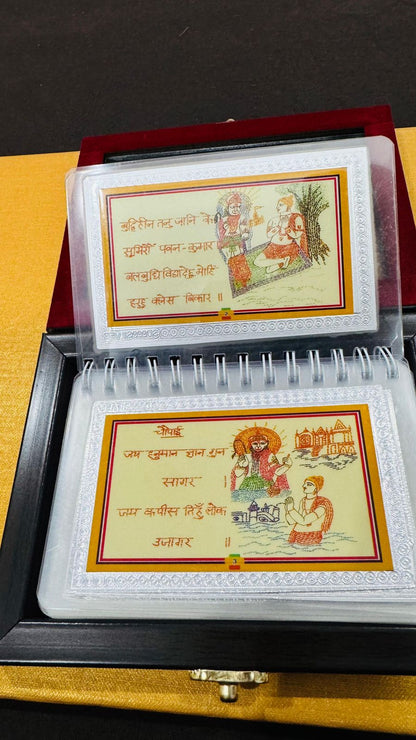 बुद्धिहीन तनु जानि के
सुमिरौं पवन-कुमार
बल बुधि विद्या देहु मोहिं
हरहु कलेस बिकार ॥
2
चौपाई
जय हनुमान ज्ञान गुन
सागर ।
जय कपीस तिहुँ लोक
उजागर ॥
3